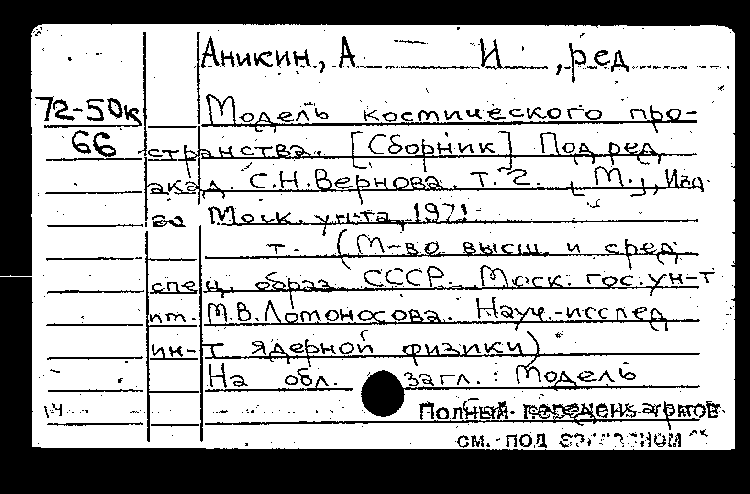 Аникин, А И , ред
72-50к Модель костического про-
66 странства. [Сборник] Под ред
акад С.Н.Вернова. т. 2. [М.], Изд
во Моск. ун-та, 1971
т. (М-во высш. и сред
спец. образ СССР. Моск. гос. ун-т
им. М.В.Ломоносова. Науч.-исслед
ин-т ядерной физики)
На обл. загл.: Модель
14 Полный перечень
см. под